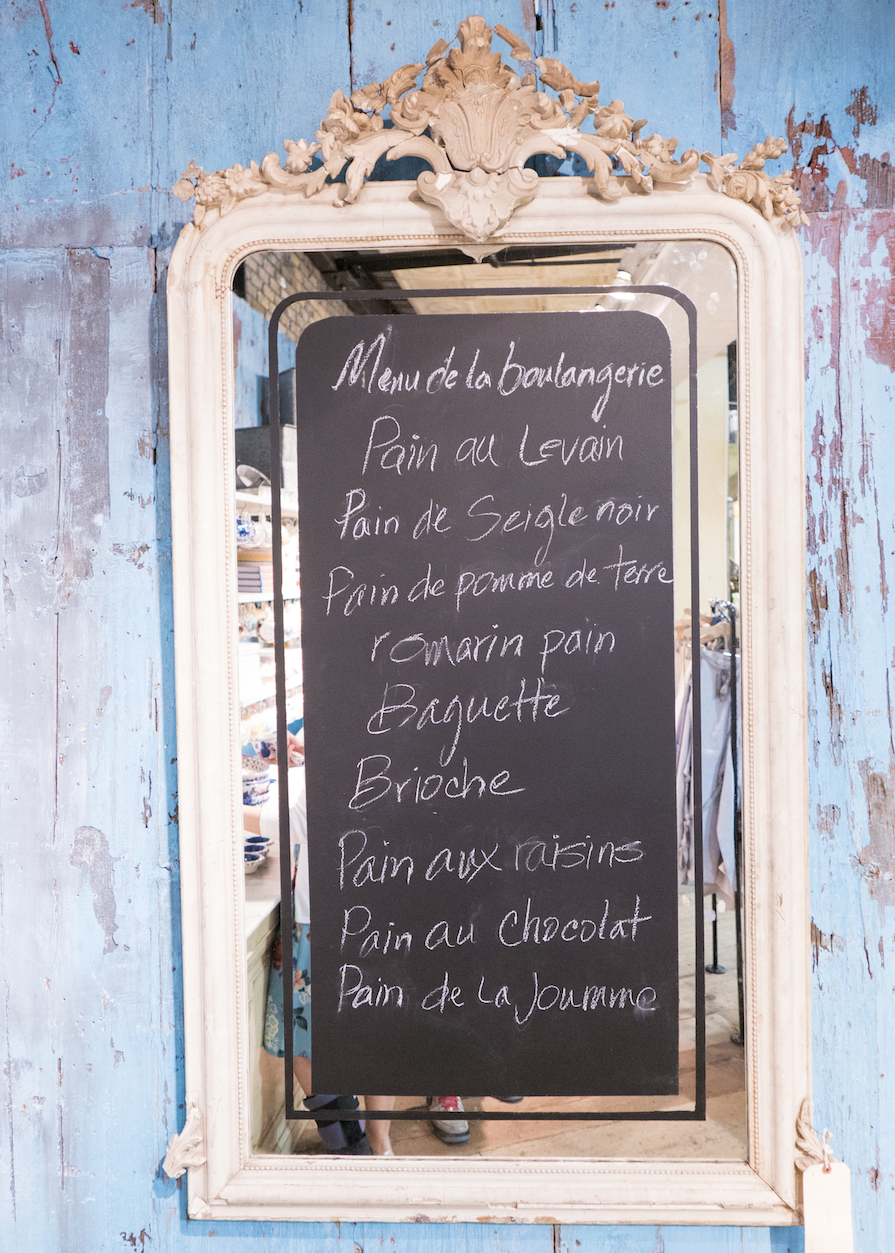 Menu de la boulangerie
Pain au Levain
Pain de Seigle noir
Pain de pomme de terre
romarin pain
Baguette
Brioche
Pain aux raisins
Pain au Chocolat
Pain de La Joumme